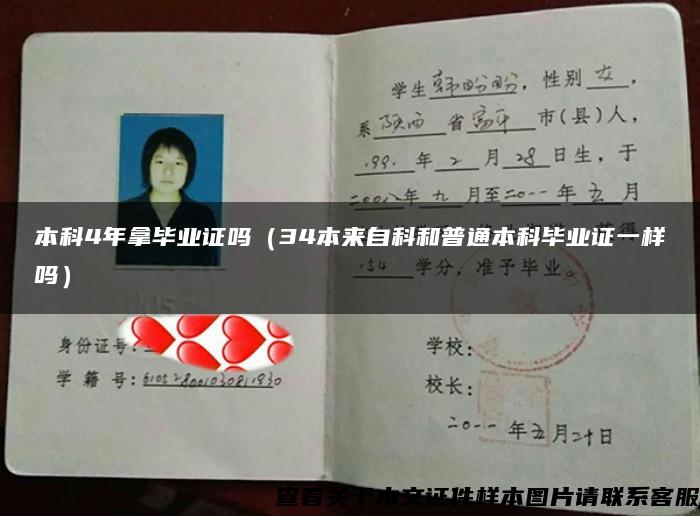 本科4年拿毕业证吗（34本来自科和普通本科毕业证一样
吗）
身份证号:
学 籍 号: 610528001030811930
学生韩盼盼，性别女，
系陕西省富平市(县)人，
1991年2月28日生，于
二00八年九月至二0一一年五月
154学分，准予毕业。
学校:
校长:
二0一一年五月二十日
查看关于本文证件样本图片请联系客服